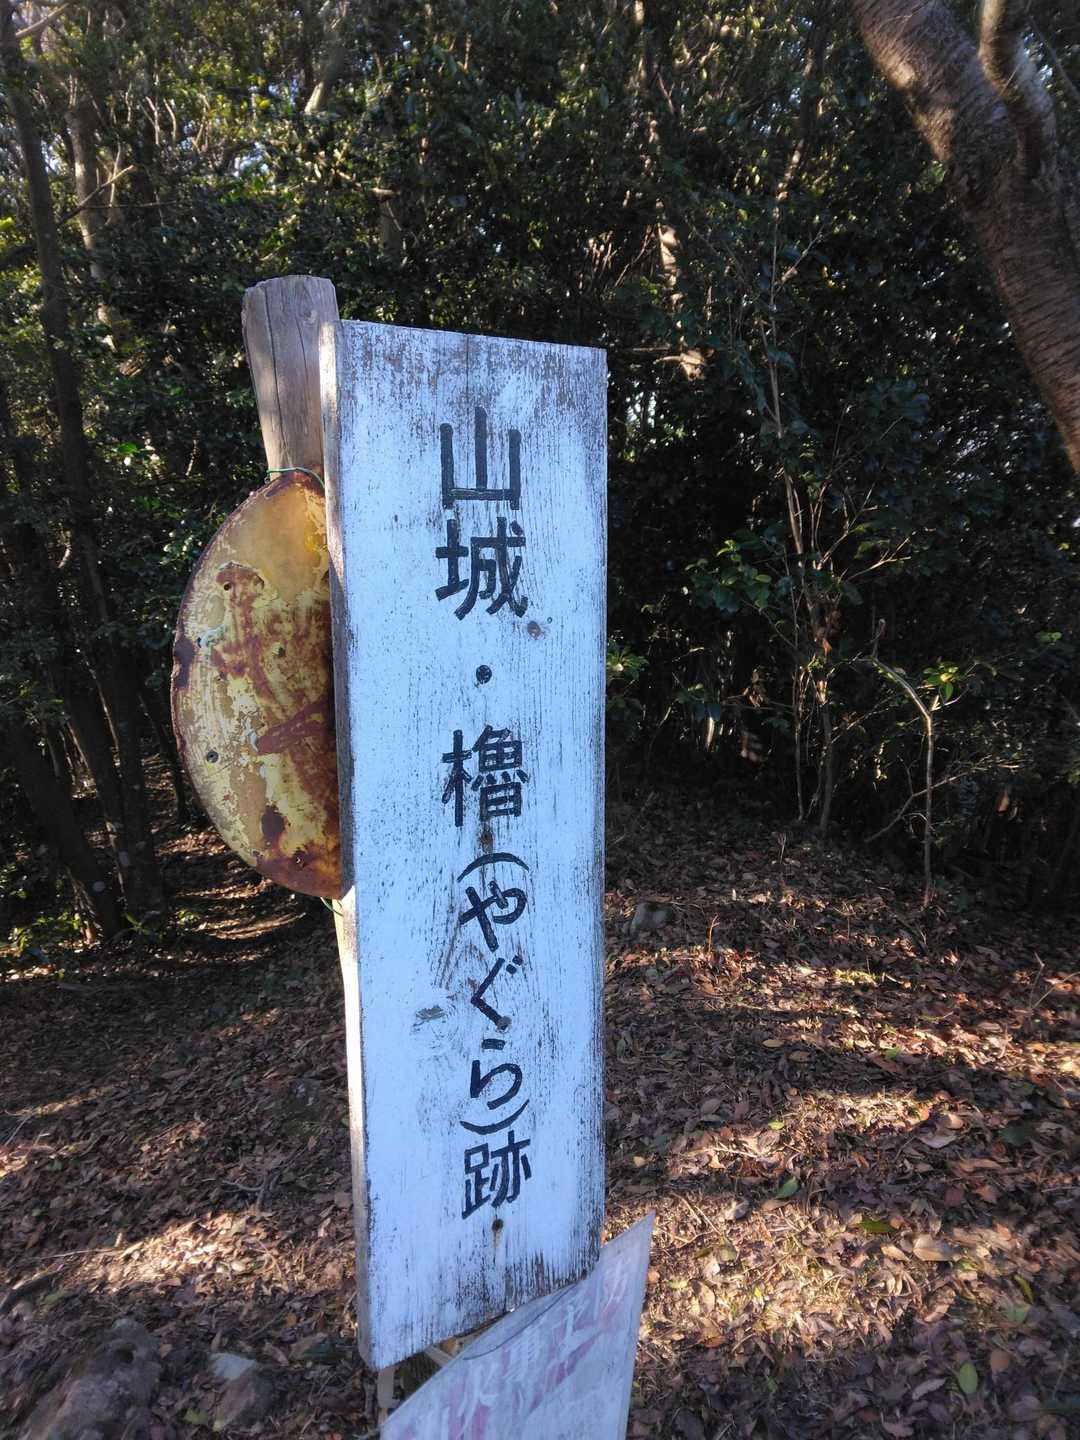 山城・櫓(やぐら)跡